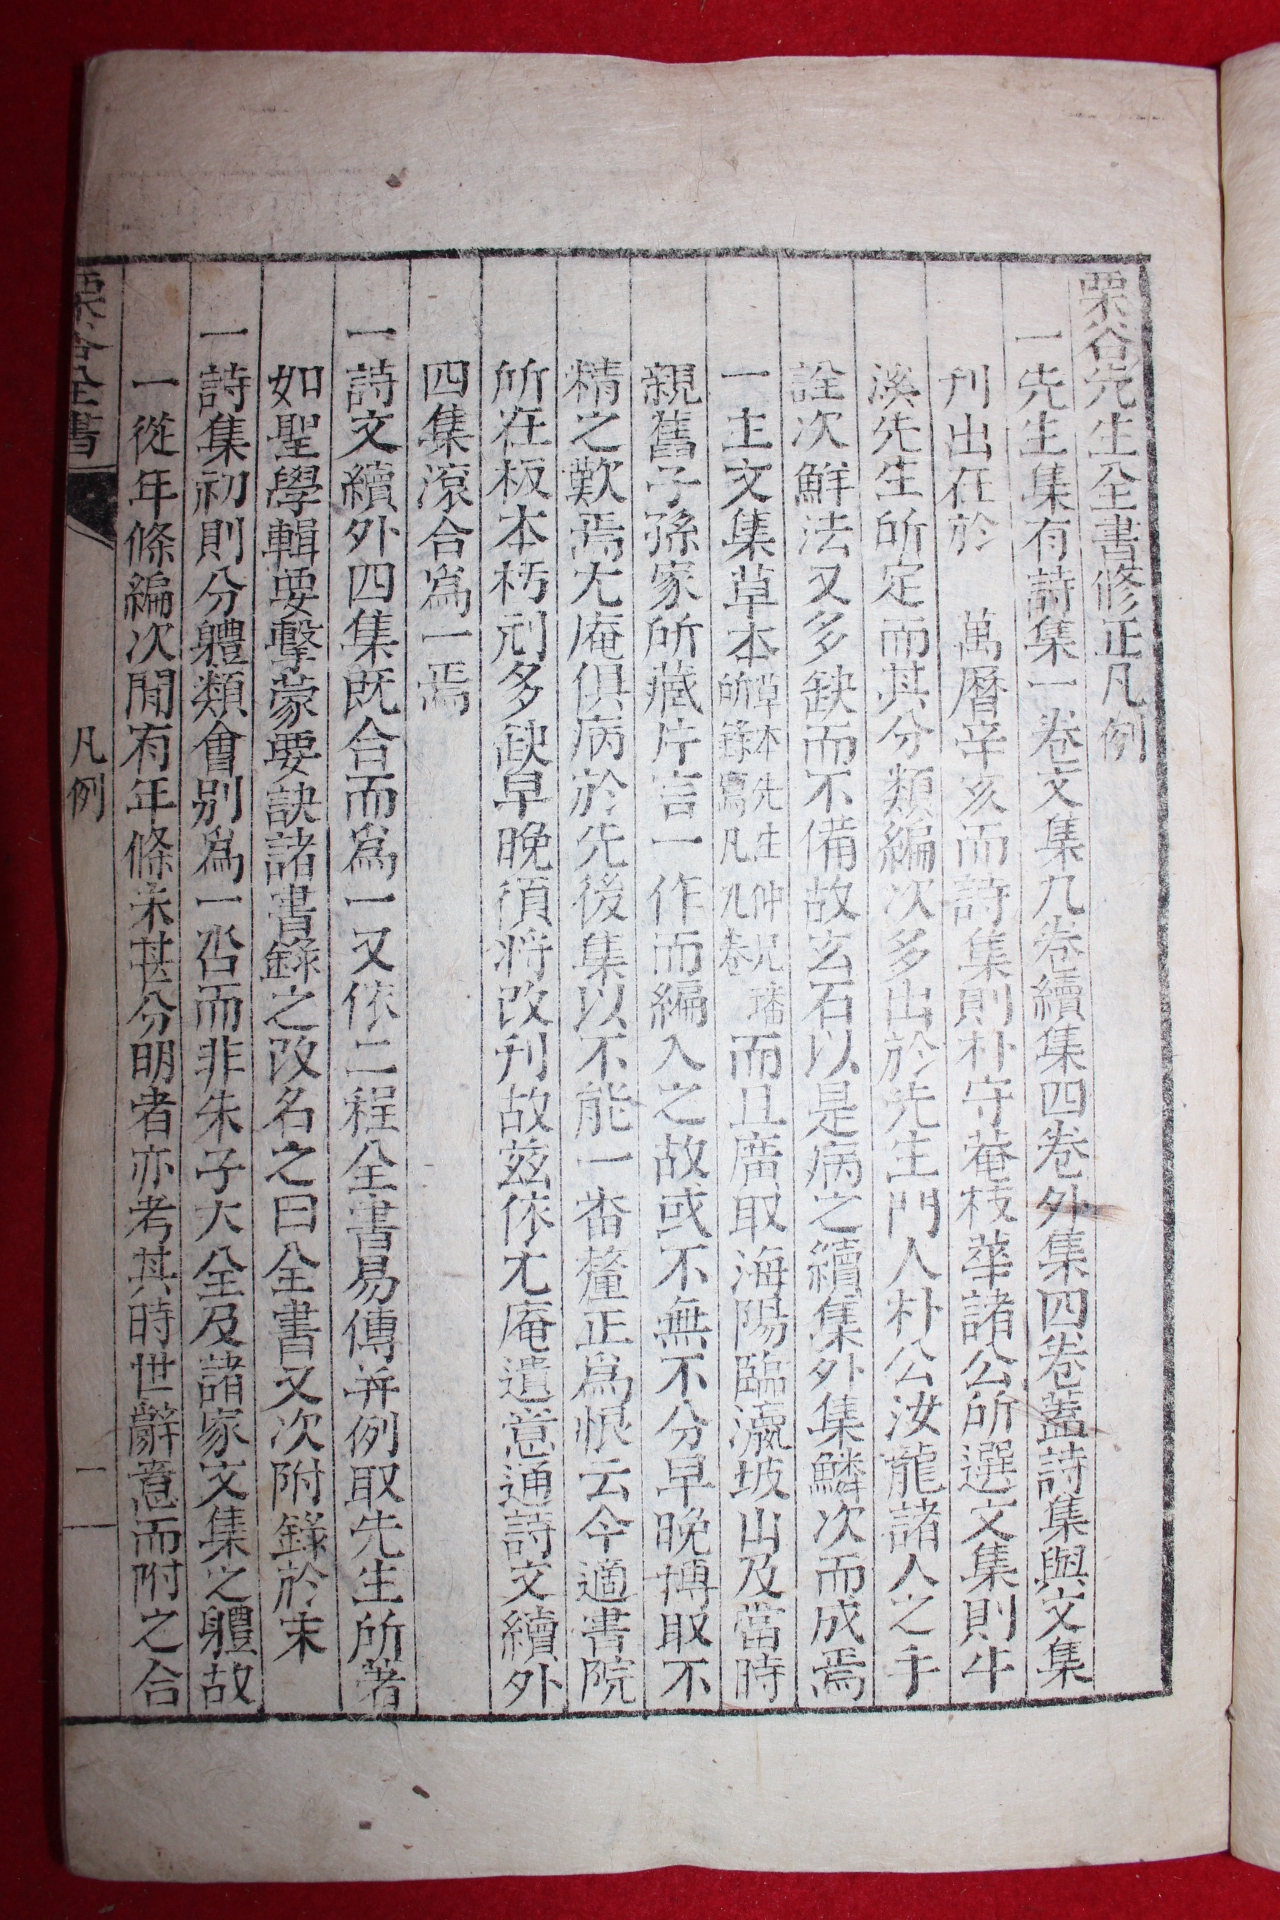 栗谷先生全書修正凡例
一先生集有詩集一卷文集九卷續集四卷外集四卷蓋詩集與文集
刊出在於 萬曆辛亥而詩集則朴守菴枝華諸公所選文集則牛
溪先生所定而其分類編次多出於先生門人朴公汝龍諸人之手
詮次鮮法又多缺而不備故玄石以是病之續集外集鱗次而成焉
一主文集草本草本先生仲兄璠所錄寫凡九卷而且廣取海陽臨瀛坡山及當時
親舊子孫家所藏片言一作而編入之故或不無不分早晚搏取不
精之歎焉尤庵俱病於先後集以不能一番釐正爲恨云今適書院
所在板本朽刓多缺早晚須將改刊故玆依尤庵遺意通詩文續外
四集滾合爲一焉
一詩文續外四集旣合而爲一又依二程全書易傳幷例取先生所著
如聖學輯要擊蒙要訣諸書錄之改名之曰全書又次附錄於末
一詩集初則分體類會別爲一呇而非朱子大全及諸家文集之體故
一從年條編次間有年條未甚分明者亦考其時世辭意而附之合
栗谷全書
凡例
一